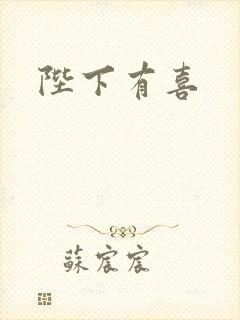 陛下有喜
蘇宸宸